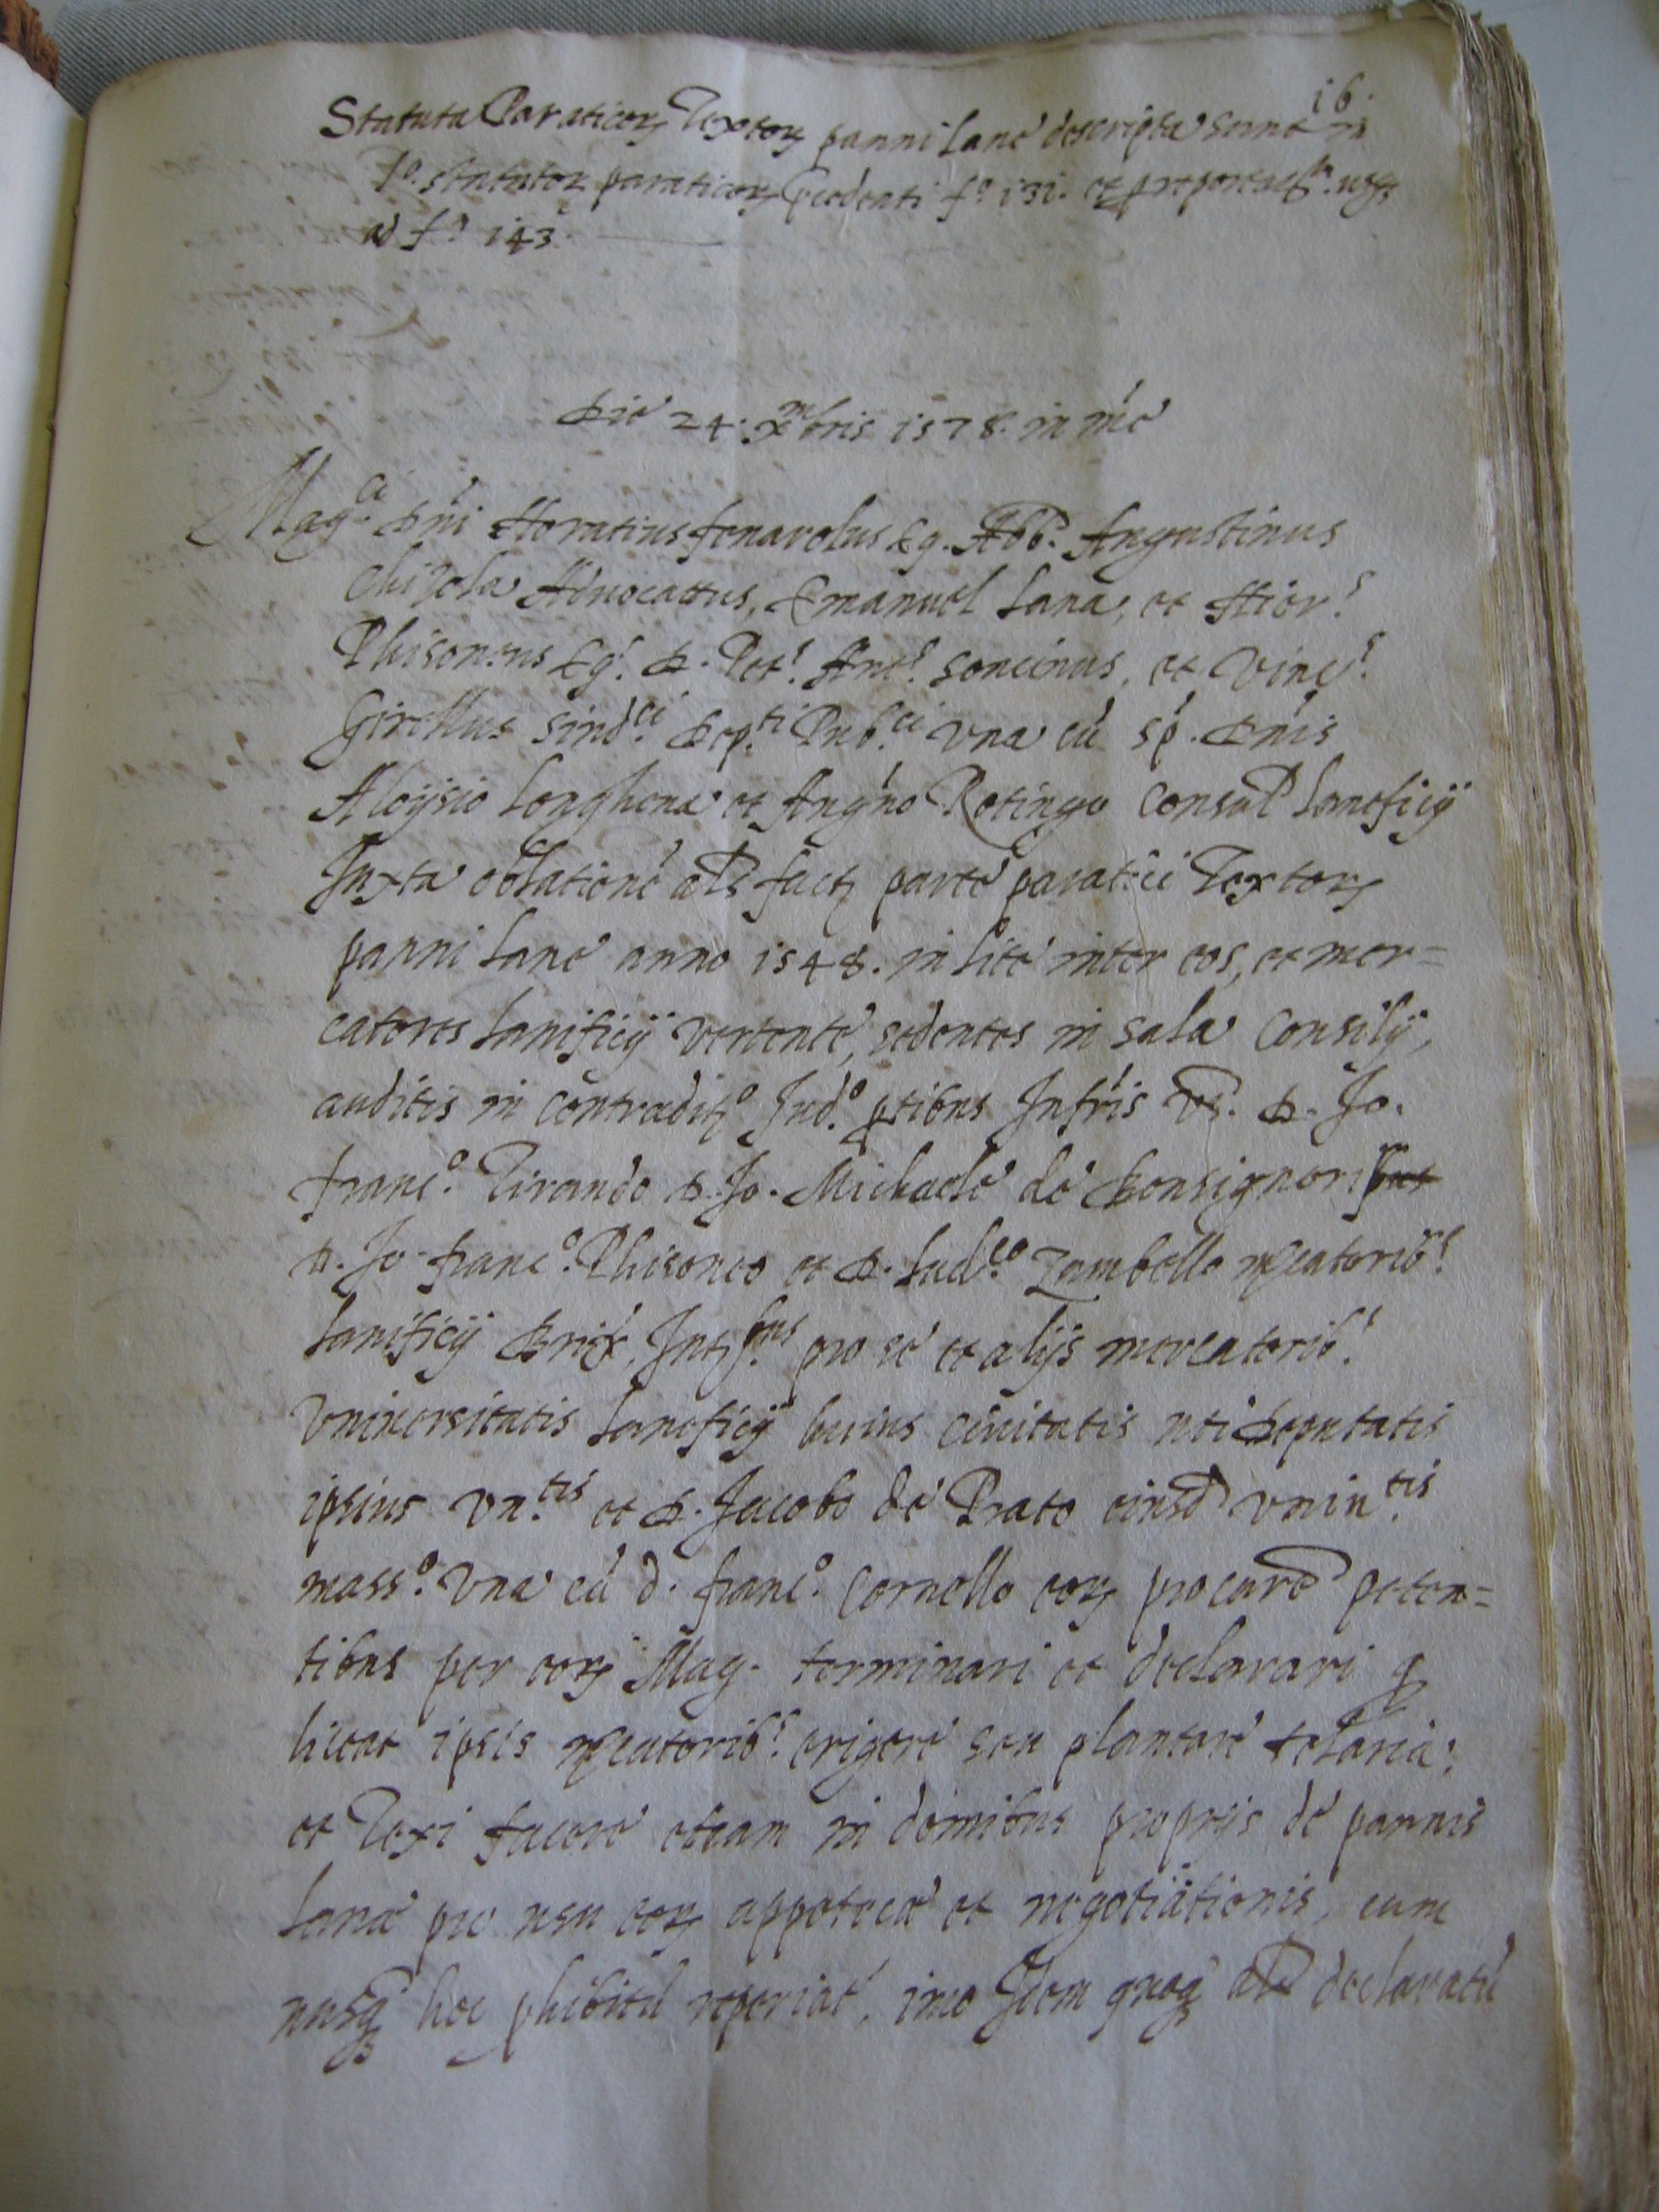 16.
Statuta Paraticorꝝ Textorꝝ panni Lane descripta sunt in
Lo. statutorꝝ paraticorꝝ f.o 131. et usqꝫ
ad f.o 143.
Die 24. Xmbris 1578. in mé
Mag.ci Dni Horatius fenarolus Eq. Abb.s Augustinus
Chizola Advocattus, Emanuel Lana, et Hier.s
Phisonens Eq.s D. Pet.s Ant.s Soncinus, et Vinc.s
Girellus Sind.ci Dep.ti Pub.ci una cū sp. Dnis
Aloÿsio Longhena et Augno Rotingo Consul Laneficij
Juxta oblationē als fact parte paratici Textorꝝ
panni Lane anno 1548. in lite inter eos, et mer=
catores Lanificij vertente, sedentes in sala Consilij,
auditis in contradit.o Jud.o ꝑtibus Infris Vz. D. Jo.
franc.o Tirando D. Jo. Michaele de Bonsignori
D. Jo. franc.o Phisoneo et D. Lud.co Zambello mꝑcatorib.s
Lanificij Brix, pro se et alijs mercatorib.s
Universitatis Laneficij huius civitatis uti Deputatis
ipsius Un.tis et D. Jacobo de Prato eiusd Univ.tis
mass.o una cū d. franc.o Cornello eorꝝ procure peten=
tibus per eorꝝ Mag. terminari et declarari ꝙ
liceat ipsis mꝑcatorib.s erigere seu plantare telaria,
et Texi facere etiam in domibus proprijs de pannis
Lanæ pro usu eorꝝ appotecæ et negotiationis, cum
nusqꝫ hoc ꝓhibitū reperiat, imo Idem quoqꝫ als declaratū